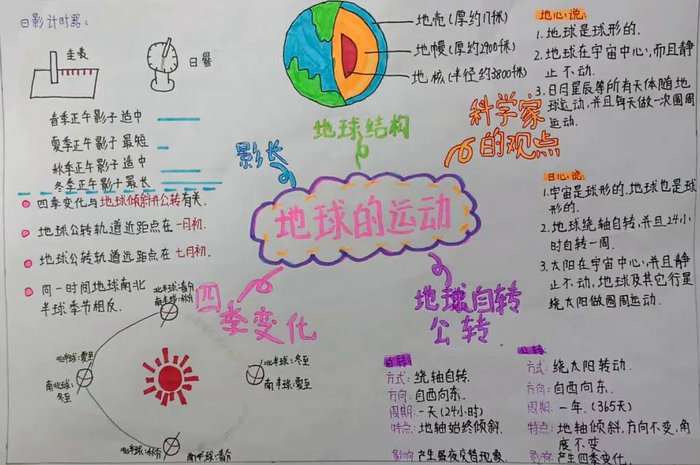 日影计时器:
圭表
日晷
春季正午影子适中
夏季正午影子最短
秋季正午影子适中
冬季正午影子最长
四季变化与地球倾斜并公转有关.
地球公转轨道近距点在一月初.
地球公转轨道远距点在七月初.
同一时间地球南北
半球季节相反.
地壳(厚约17千米)
地幔(厚约2900千米)
地核(半径约3800千米)
地球结构
影长
科学家
的观点
地球的运动
四
季变化
地球自转
公转
地心说:
1.地球是球形的.
2.地球在宇宙中心,而且静
止不动.
3.日月星辰等所有天体随地
球运动,并且每天做一次圆周
运动.
日心说:
1.宇宙是球形的.地球也是球
形的.
2.地球绕轴自转,并且24小
时自转一周.
3.太阳在宇宙中心,并且静
止不动,地球及其它行星
绕太阳做圆周运动.
北半球:春分
南半球:秋分
北半球:夏至
南半球:
冬至
北半球:冬至
南半球:夏至
北半球:秋分
南半球:春分
自转
方式:绕轴自转.
方向:自西向东.
周期:一天(24小时)
特点:地轴始终倾斜.
影响:产生昼夜交替现象.
公转
方式:绕太阳转动.
方向:自西向东.
周期:一年.(365天)
特点:地轴倾斜,方向不变,角
度不变.
影响:产生四季变化.